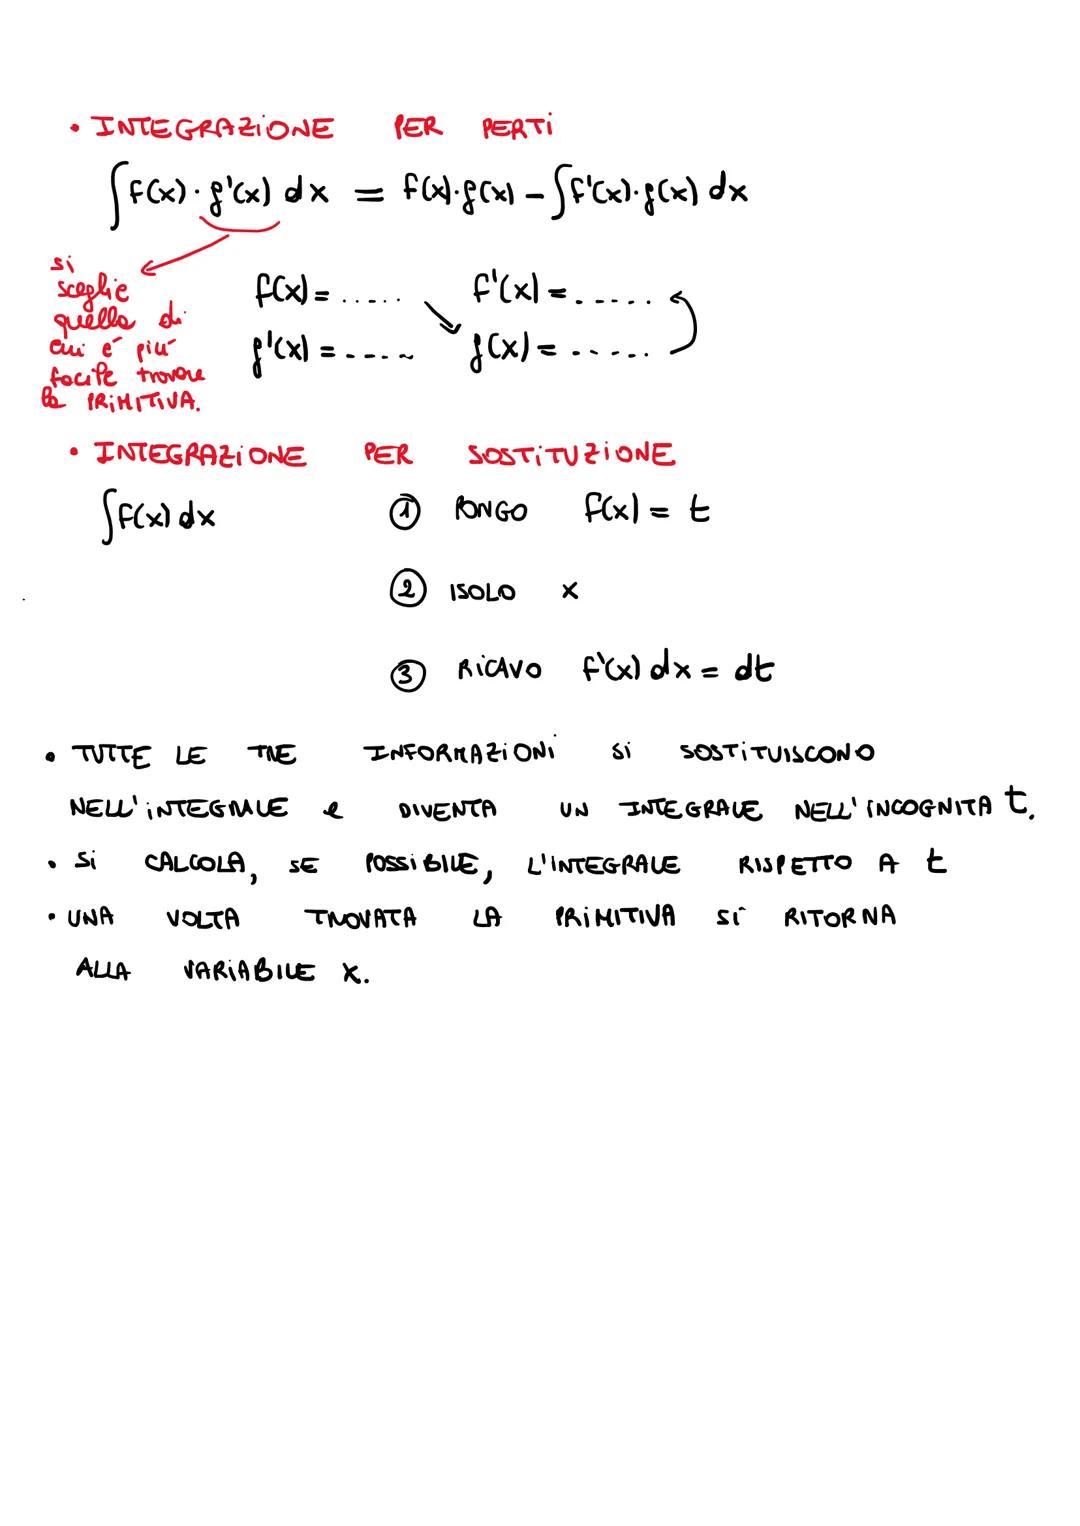 • INTEGRAZIONE PER PERTI
∫f(x)·g'(x) dx = f(x)·g(x) - ∫f'(x)·g(x) dx
si
sceglie
quella di
cui e' piu'
facile trovare
la PRIMITIVA.
f(x) = ..... f'(x) = .....
g'(x) = ..... g(x) = .....
• INTEGRAZIONE PER SOSTITUZIONE
∫f(x) dx ① PONGO f(x) = t
② ISOLO x
③ RICAVO f'(x) dx = dt
• TUTTE LE TRE INFORMAZIONI SI SOSTITUISCONO
NELL'INTEGRALE e DIVENTA UN INTEGRALE NELL'INCOGNITA t.
• SI CALCOLA, SE POSSIBILE, L'INTEGRALE RISPETTO A t
• UNA VOLTA TROVATA LA PRIMITIVA SI RITORNA
ALLA VARIABILE X.